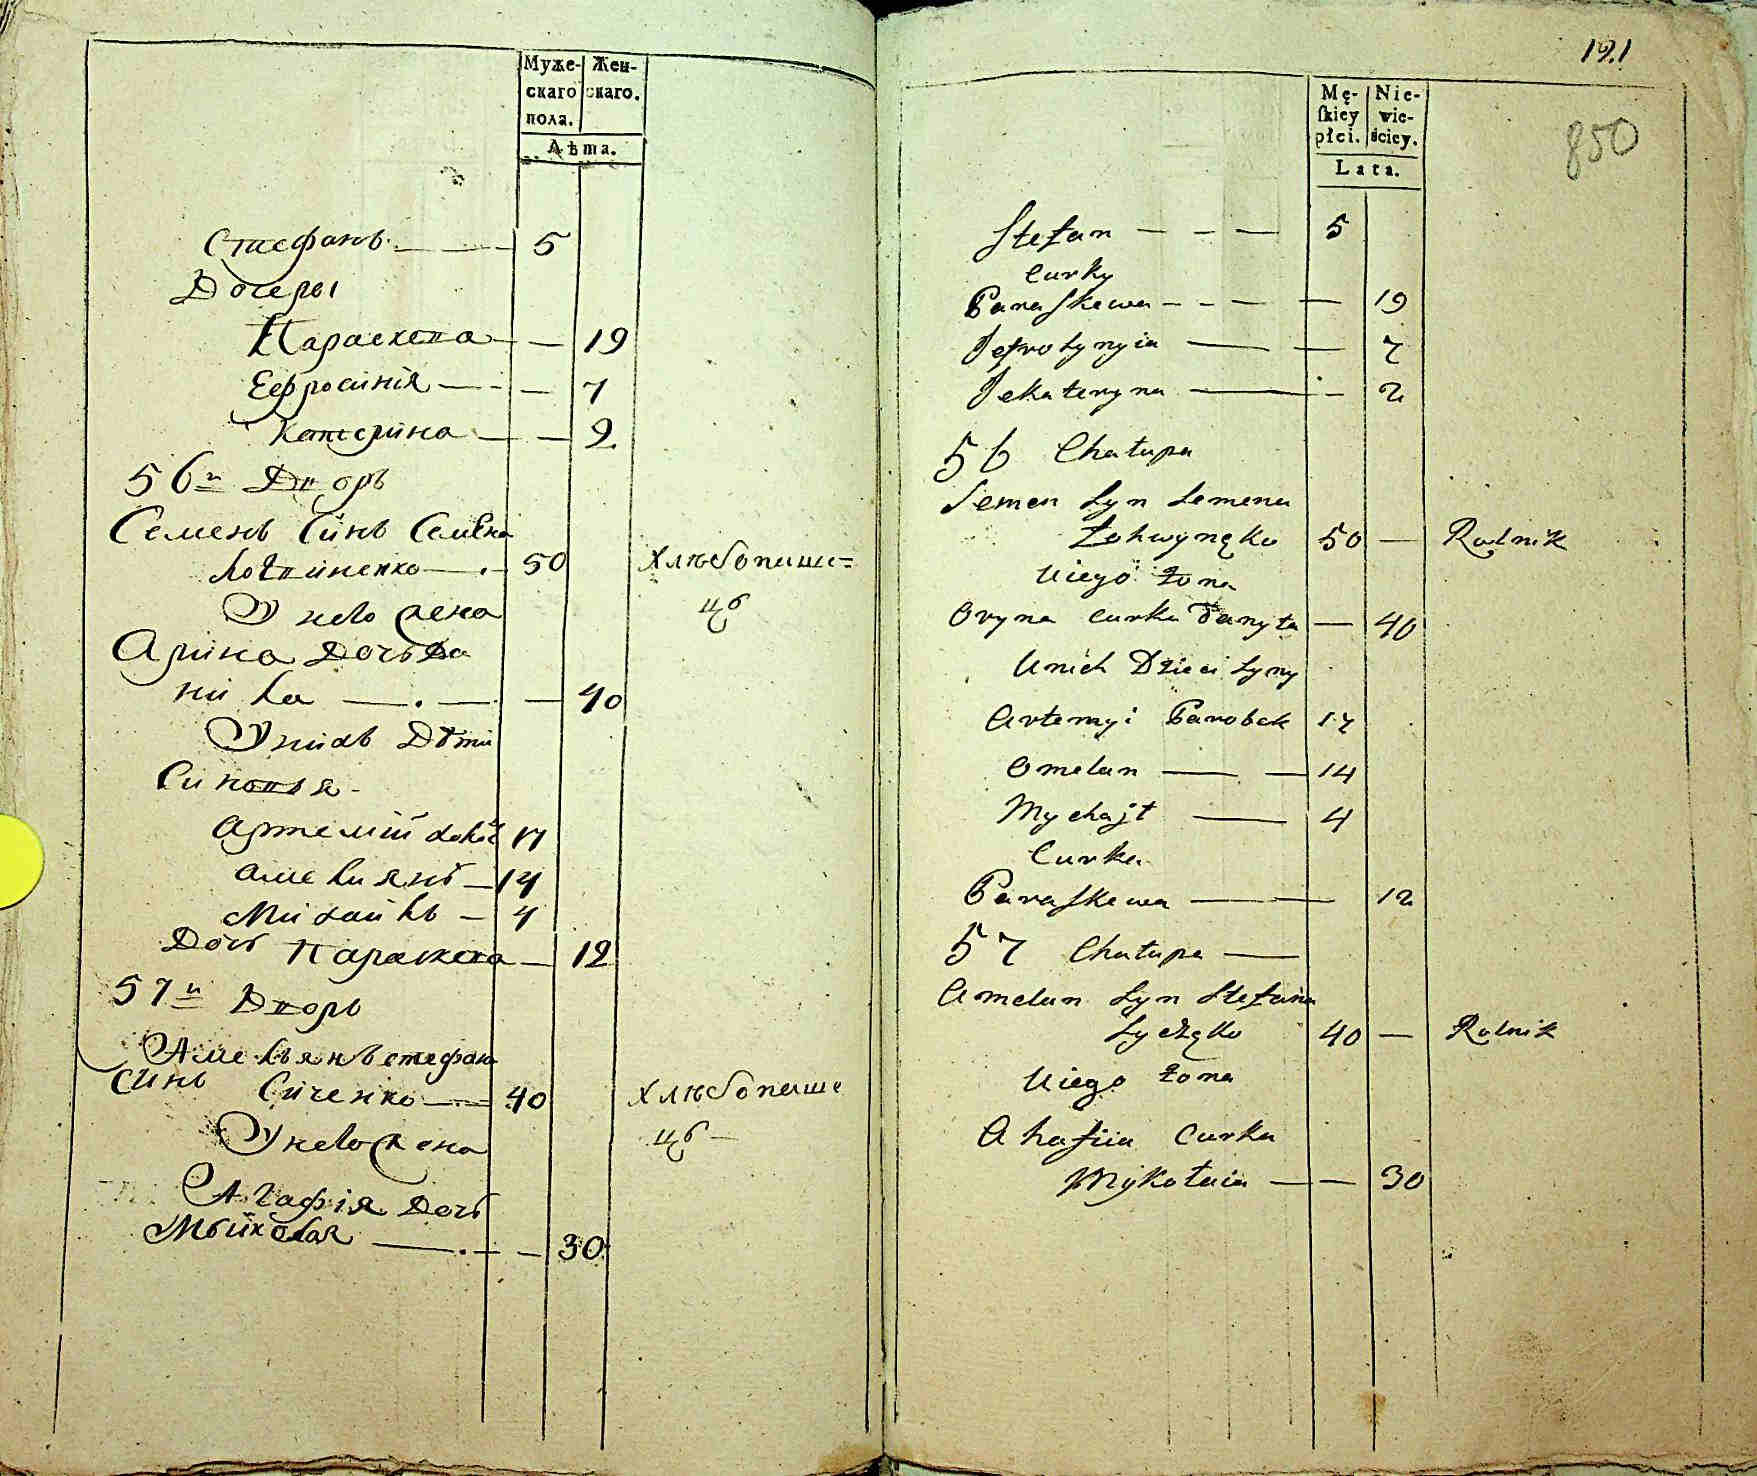 Муже- Жен-
скаго скаго.
пола.
Лѣта.
Стефанъ — 5
Дочеры
Параскева — — 19
Ефросинія — — 7
Катерина — — 2
56й Дворъ
Семенъ Синъ Семена
Логвиненко — 50 Хлѣбопаше=
У него жена цъ
Арина Дочь Да
нила — — 40
У нихъ Дѣти
Синовья
Артемій 17
Амелиянъ — 14
Михайлъ — 4
Дочь Параскева — 12
57й Дворъ
Амельянъ Стефана
Синъ Сиченко — 40 Хлѣбопаше
У него жена цъ —
Агафія Дочь
Мыйколая — — 30
121
850
Mę- Nie-
ſkiey wie-
płci. ściey.
Lata.
Stefan — — — 5
Curky
Paraskewa — — — — 19
Jefrosynyia — — 7
Jekateryna — — 2
56 Chałupa
Semen Syn Semena
Łohwynęko 50 — Rolnik
U iego Żona
Oryna curka Danyła — 40
U nich Dzieci Syny
Artemyi Parobek 17
Omelan — — 14
Mychajł — 4
Curka
Paraskewa — — 12
57 Chałupa —
Amelan Syn Stefana
Syczęko 40 — Rolnik
U iego Żona
Ahafiia Curka
Mykołaia — — 30